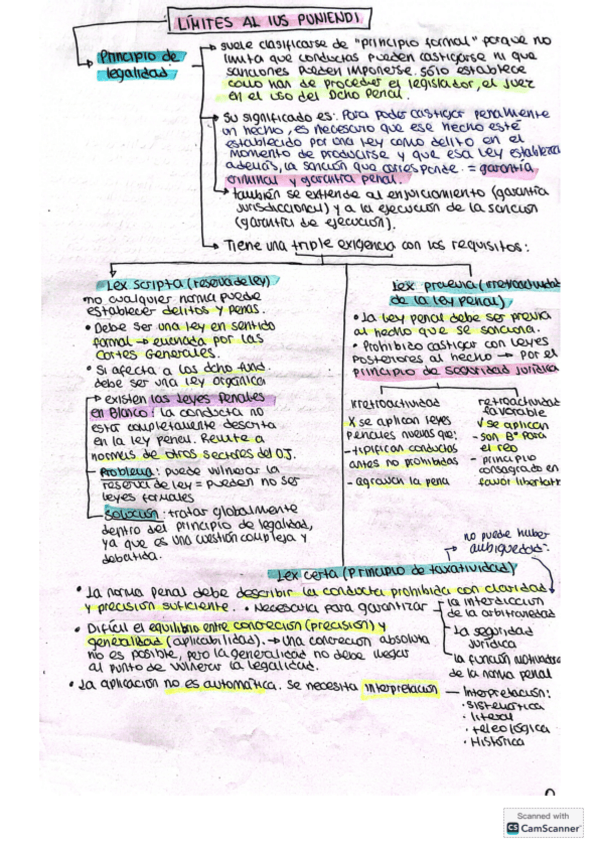 LÍMITES AL IUS PUNIENDI
Principio de
legalidad
suele clasificarse de "principio formal" porque no
limita que conductas pueden castigarse ni que
sanciones pueden imponerse. Sólo establece
como han de proceder el legislador, el juez
en el uso del Dcho Penal.
Su significado es: Para poder castigar penalmente
un hecho, es necesario que ese hecho esté
establecido por una ley como delito en el
momento de producirse y que esa ley establezca
además, la sanción que corresponde. = garantía
criminal y garantía penal.
también se extiende al enjuiciamiento (garantía
jurisdiccional) y a la ejecución de la sanción
(garantía de ejecución).
Tiene una triple exigencia con los requisitos:
Lex scripta (reserva de ley)
no cualquier norma puede
establecer delitos y penas.
• Debe ser una ley en sentido
formal → emanada por las
Cortes Generales.
• Si afecta a los dcho fund.
debe ser una ley orgánica
existen las leyes penales
en Blanco: la conducta no
está completamente descrita
en la ley penal. Remite a
normas de otros sectores del OJ.
Problema: puede vulnerar la
reserva de ley = pueden no ser
leyes formales
Solución: tratar globalmente
dentro del principio de legalidad,
ya que es una cuestión compleja y
debatida.
Lex praevia (irretroactividad
de la ley penal)
• La ley penal debe ser previa
al hecho que se sanciona.
• Prohibido castigar con leyes
Posteriores al hecho → Por el
principio de seguridad jurídica
irretroactividad
X se aplican leyes
Penales nuevas que:
- tipifican conductas
antes no prohibidas
- agravan la pena
retroactividad
favorable
√ se aplican
- son Bº Para
el reo
- principio
consagrado en
favor libertat
no puede haber
ambigüedad.
Lex certa (principio de taxatividad)
• La norma penal debe describir la conducta prohibida con claridad
y precisión suficiente. • Necesaria para garantizar
- la interdicción
de la arbitrariedad
- La seguridad
jurídica
la función motivadora
de la norma penal
• Difícil el equilibrio entre concreción (precisión) y
generalidad (aplicabilidad). → Una concreción absoluta
no es posible, pero la generalidad no debe llegar
al punto de vulnerar la legalidad.
• La aplicación no es automática. Se necesita interpretación
— Interpretación:
• Sistemática
• literal
• teleológica
• Histórica
Scanned with
CS CamScanner